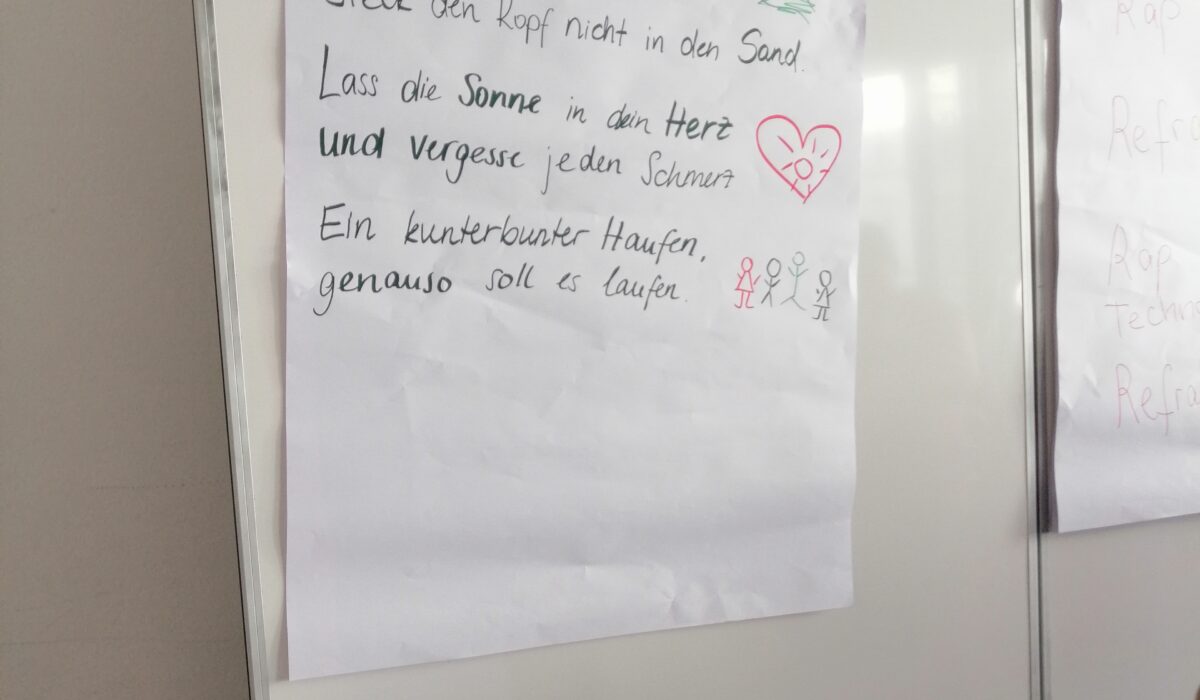 den Kopf nicht in den Sand.
Lass die Sonne in dein Herz
und vergesse jeden Schmerz
Ein kunterbunter Haufen,
genauso soll es laufen.
Rap
Rap